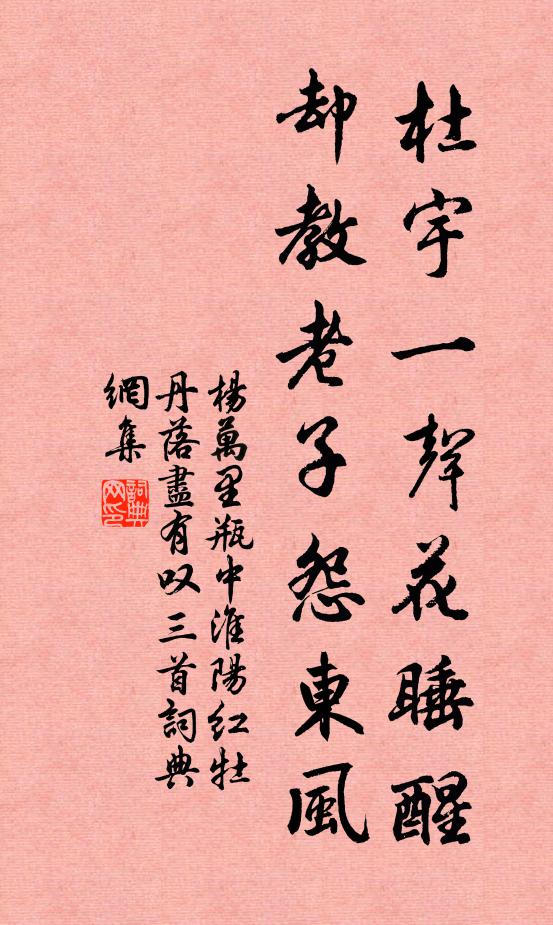 杜宇一聲花睡醒
却教老子怨東風
楊萬里瓶中淮陽紅牡
丹落盡有叹三首詞典
網集
詞典
网印